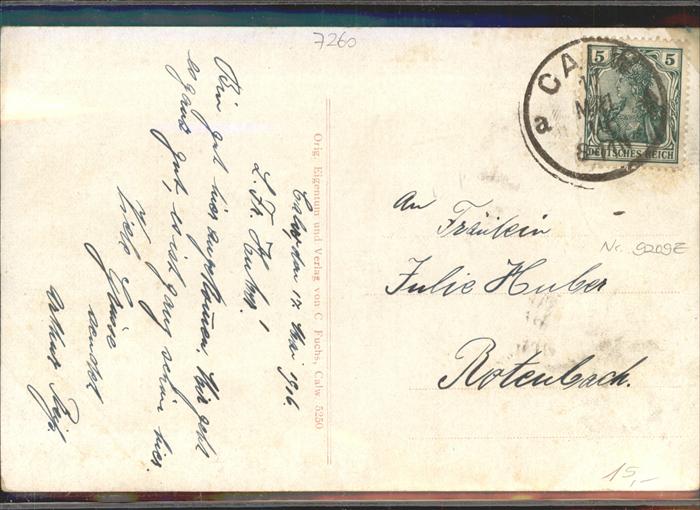 7260
Calw, den 17. Mai 1916.
L. Fr. Huber!
Bin gut hier angekommen. Mir geht
es ganz gut, es ist ganz schön hier.
Viele Grüsse
sendet
Orig. Eigentum und Verlag von C. Fuchs, Calw. 5250
CALW
MAI
a
5 5
DEUTSCHES REICH
An
Fräulein
Julie Huber
Rotenbach.
Nr. 9209E
15,-